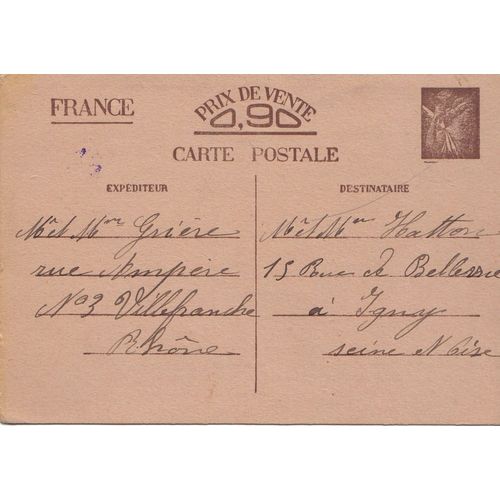 FRANCE
PRIX DE VENTE
0,90
CARTE POSTALE
EXPÉDITEUR
Mr et Mme Grière
rue Ampère
No 3 Villefranche
Rhône
DESTINATAIRE
Mr et Mme Hatton
15 Rue de Bellevue
à Igny
seine & Oise